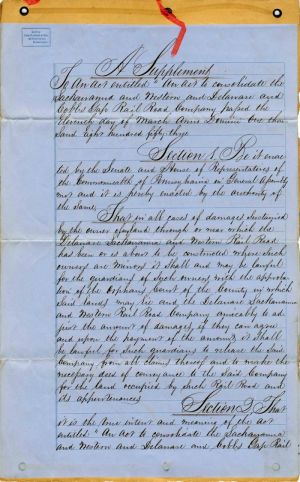 A Supplement
To An Act entitled "An Act to consolidate the
Lackawanna and Western and Delaware and
Cobb's Gap Rail Road Company passed the
Eleventh day of March Anno Domini One thou
sand eight hundred fifty three.
Section 1 Be it enac
ted by the Senate and House of Representatives of
the Commonwealth of Pennsylvania in General Assembly
met and it is hereby enacted by the authority of
the same,
That in all cases of damages sustained
by the owner of land through or near which the
Delaware Lackawanna and Western Rail Road
has been or is about to be constructed where such
owners are Minors it shall and may be lawful
for the guardians of such minors with the approba-
tion of the Orphans Court of the County in which
said lands may lie and the Delaware Lackawanna
and Western Rail Road Company amicably to ad
just the amount of damages if they can agree
and upon the payment of the amount, it shall
be lawful for such guardians to release the said
Company from all claims thereof and to make the
necessary deed of conveyance to the said Company
for the land occupied by such Rail Road and
its appurtenances.
Section 2 That
it is the true intent and meaning of the Act
entitled "An Act to consolidate the Lackawanna
and Western and Delaware and Cobb's Gap Rail